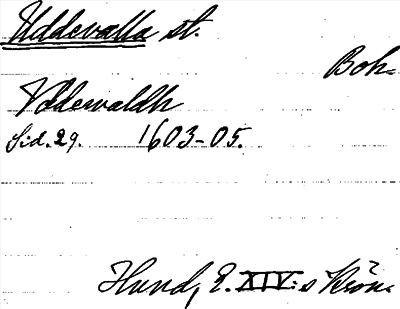 Uddevalla st.
Boh.
Vddewaldh
Sid. 29. 1603-05.
Hund, E. XIV:s Krön.